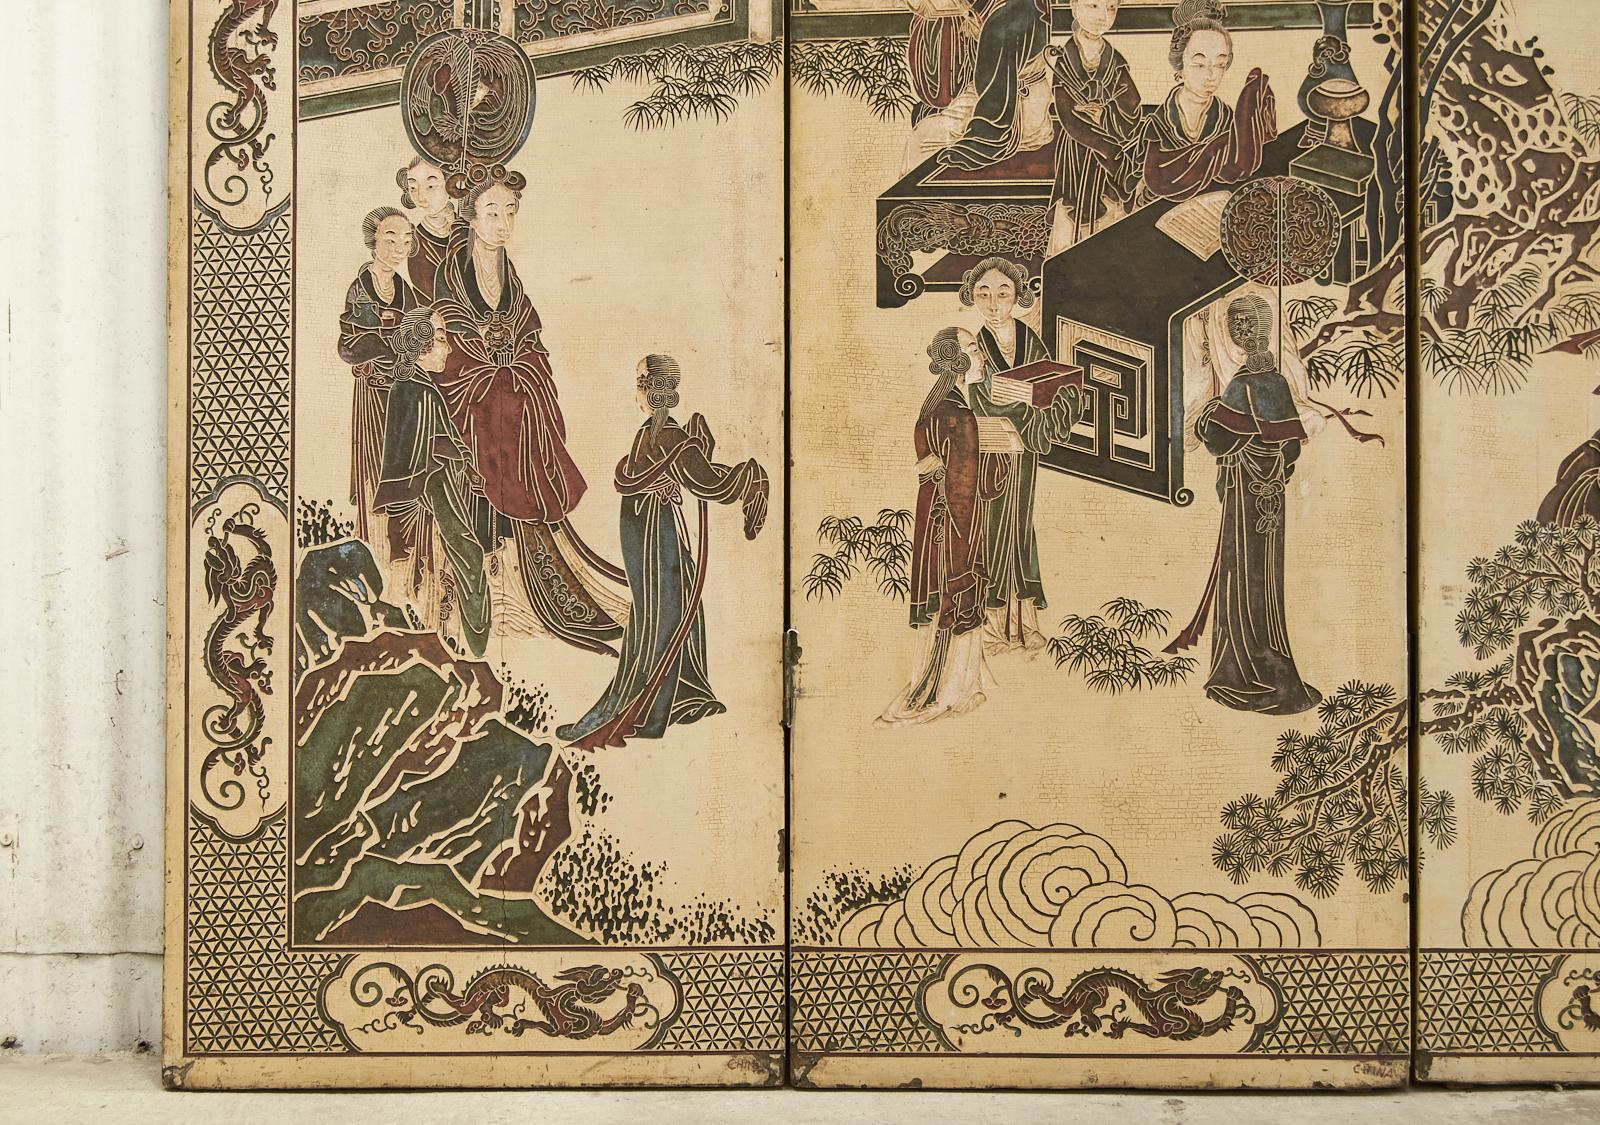 CHINA
CHINA